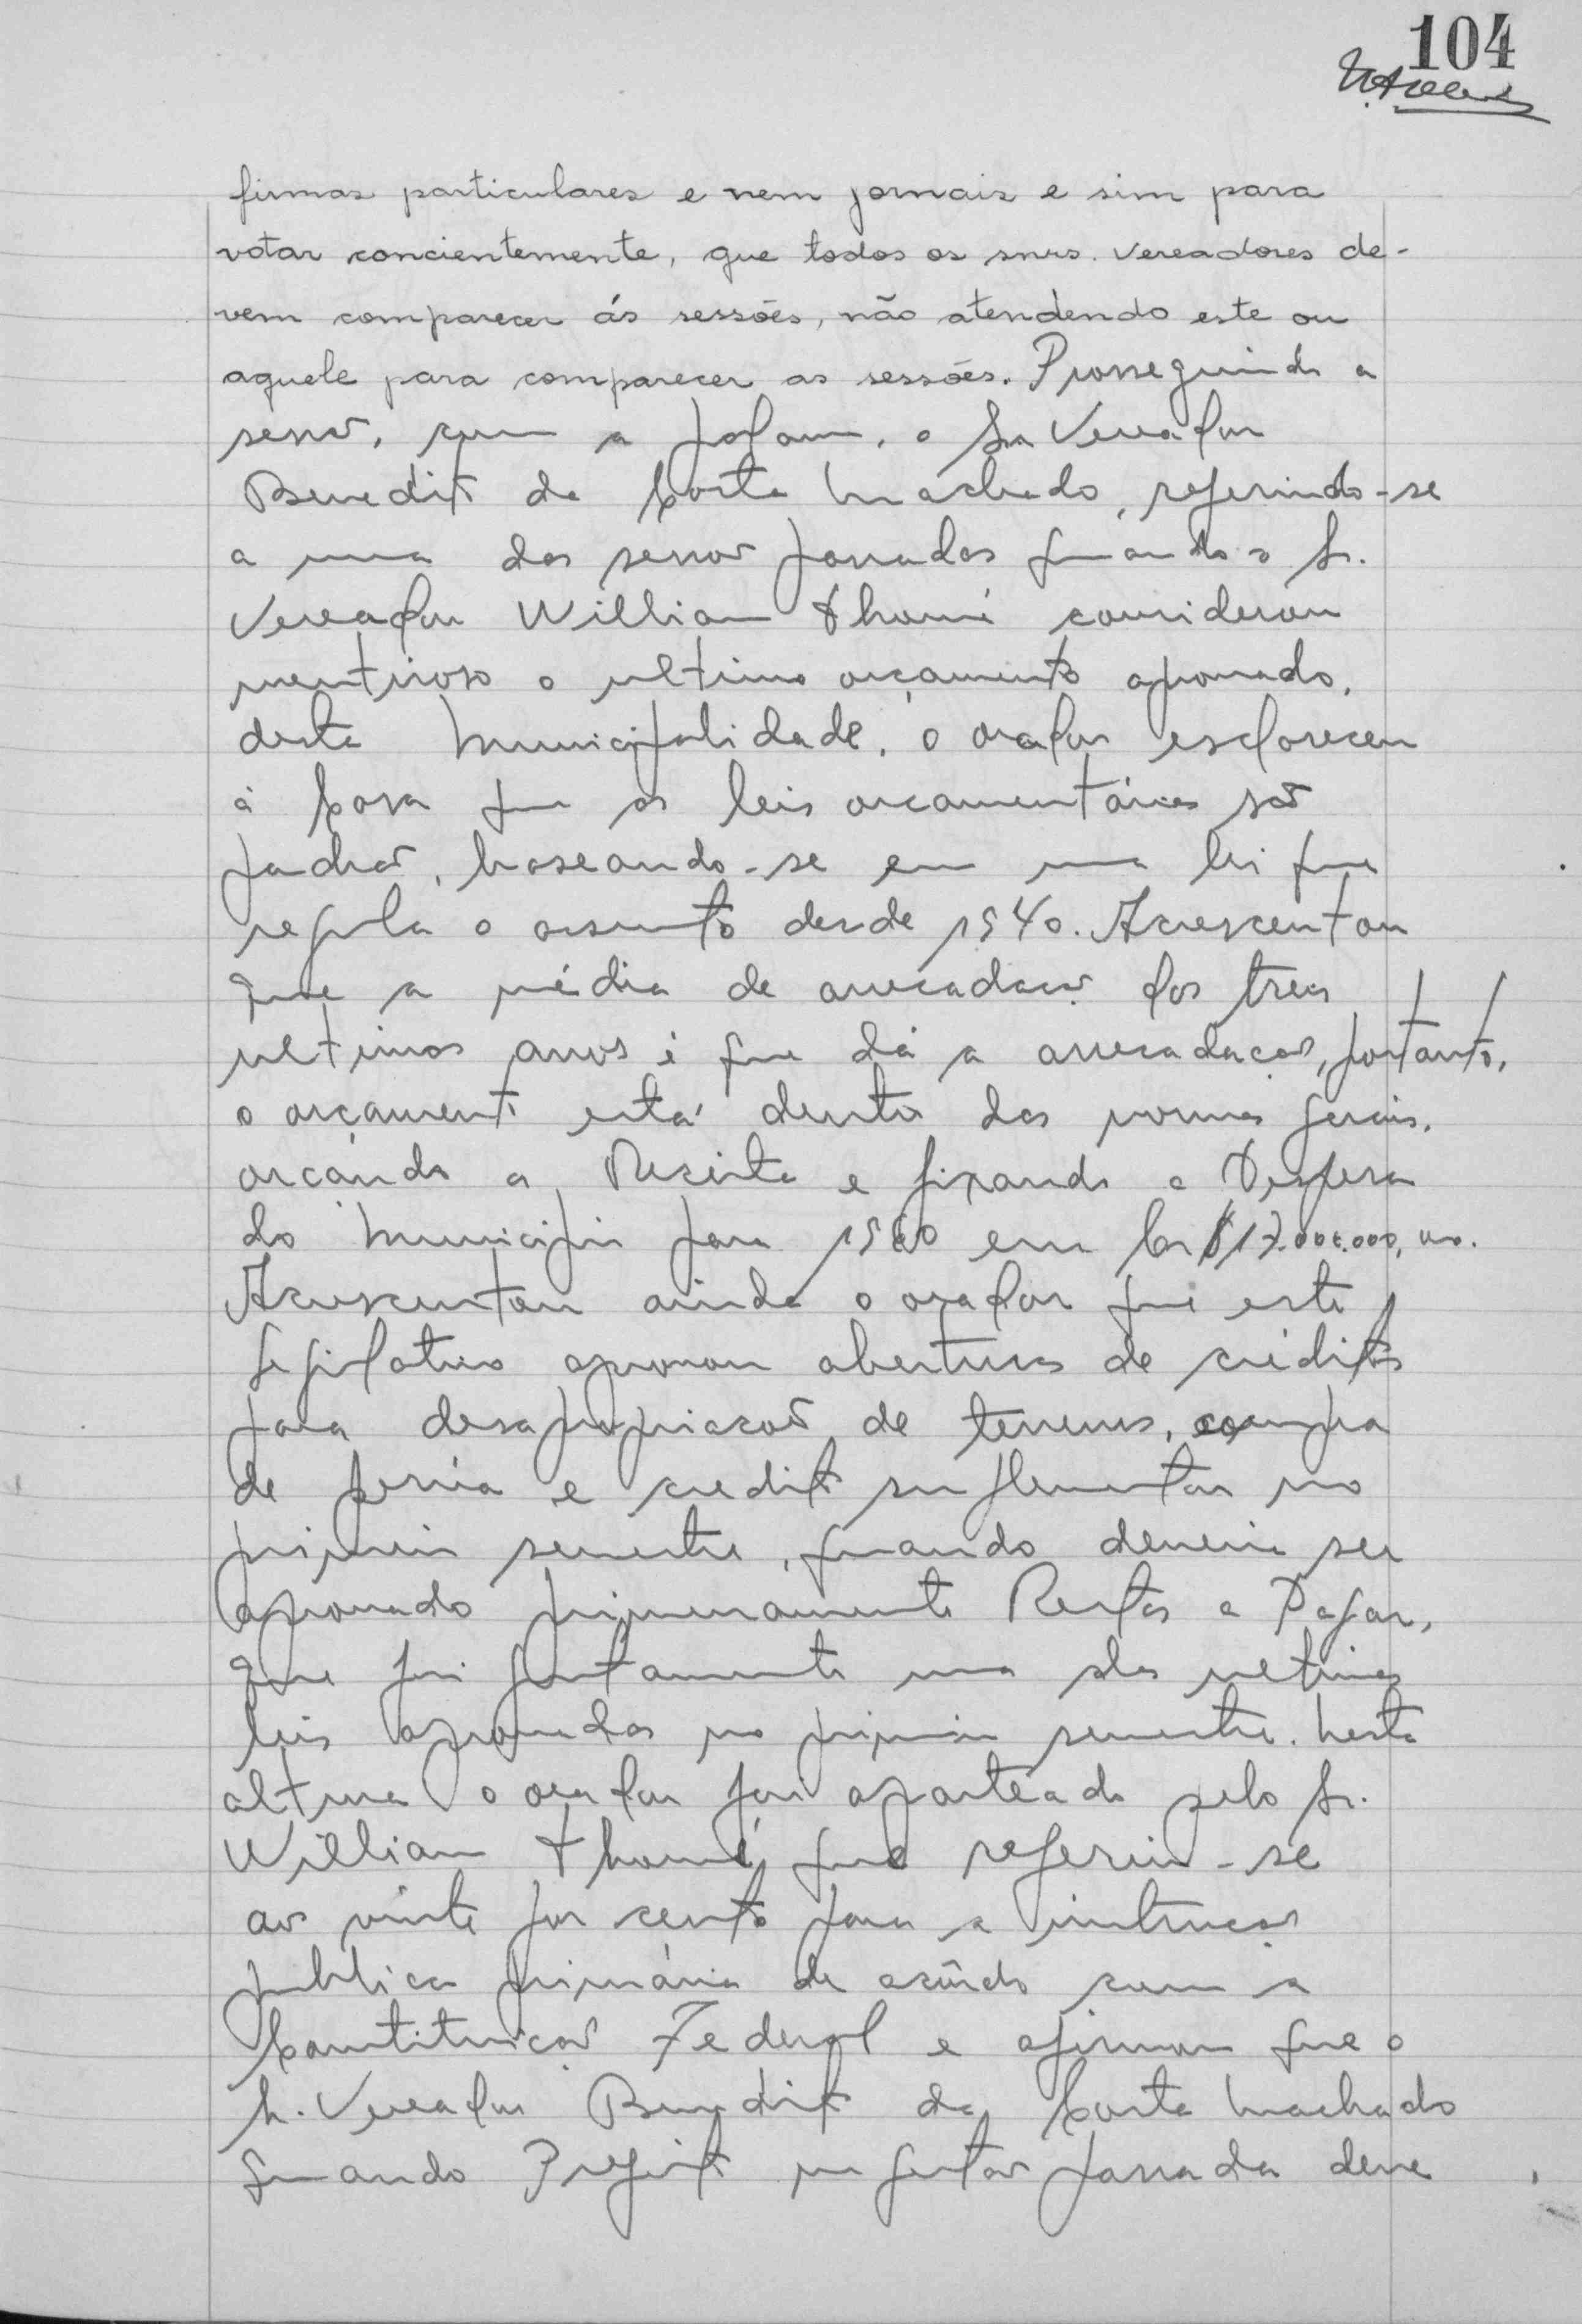 104
firmas particulares e nem jornais e sim para
votar concientemente, que todos os snrs. Vereadores de-
vem comparecer ás sessões, não atendendo este ou
aquele para comparecer as sessões. Prosseguindo a
sessão, com a palavra, o Sr Vereador
Benedito da Costa Machado, referindo-se
a uma das sessões passadas quando o Sr.
Vereador William Thomé considerou
mentiroso o ultimo orçamento aprovado,
desta Municipalidade, o orador esclareceu
á Casa que as leis orcamentárias são
padrão, baseando-se em uma lei que
regula o assunto desde 1940. Acrescentou
que a média de arrecadação dos tres
ultimos anos é que dá a arrecadação, portanto,
o orçamento está dentro das normas gerais,
orçando a Receita e fixando a Despesa
do Municipio para 1960 em Cr$17.000.000,00.
Acrescentou ainda o orador que este
Legislativo aprovou aberturas de créditos
para desapropriação de terrenos, compra
de e credito suplementar no
primeiro semestre, quando deveria ser
aprovado primeiramente Restos a Pagar,
que foi justamente uma das ultimas
leis aprovadas no primeiro semestre. Nesta
altura o orador foi aparteado pelo Sr.
William Thomé que referiu-se
aos vinte por cento para a instrução
publica primária de acôrdo com a
Constituição Federal e afirmou que o
Sr. Vereador Benedito da Costa Machado
quando Prefeito na gestão passada deve